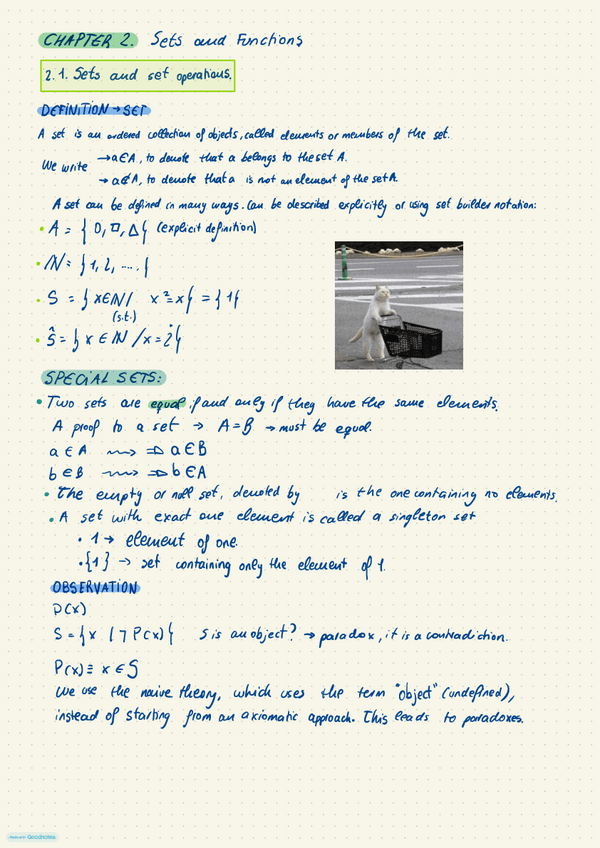 CHAPTER 2. Sets and Functions
2.1. Sets and set operations.
DEFINITION → SET
A set is an ordered collection of objects, called elements or members of the set.
We write → a∈A, to denote that a belongs to the set A.
→ a∉A, to denote that a is not an element of the set A.
A set can be defined in many ways. Can be described explicitly or using set builder notation:
• A = { O, □, △ { (explicit definition)
• N = { 1, 2, .... {
• S = { x∈N / x² = x { = { 1 {
(s.t.)
• Ŝ = { x ∈ N / x = i² {
SPECIAL SETS:
• Two sets are equal if and only if they have the same elements.
A proof to a set → A = B → must be equal.
a ∈ A ⇝ ⇒ a ∈ B
b ∈ B ⇝ ⇒ b ∈ A
• The empty or null set, denoted by is the one containing no elements.
• A set with exact one element is called a singleton set
• 1 → element of one.
• {1} → set containing only the element of 1.
OBSERVATION
P(x)
S = { x | ¬ P(x) { S is an object? → paradox, it is a contradiction.
P(x) ≡ x ∈ S
We use the naive theory, which uses the term "object" (undefined),
instead of starting from an axiomatic approach. This leads to paradoxes.
Made with Goodnotes